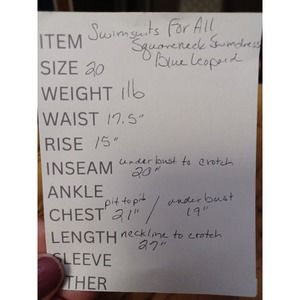 ITEM Swimsuits For All
Squareneck Swimdress
Blue Leopard
SIZE 20
WEIGHT 1lb
WAIST 17.5"
RISE 15"
INSEAM underbust to crotch
20"
ANKLE
CHEST pit to pit 21" / underbust 19"
LENGTH neckline to crotch
27"
SLEEVE
OTHER